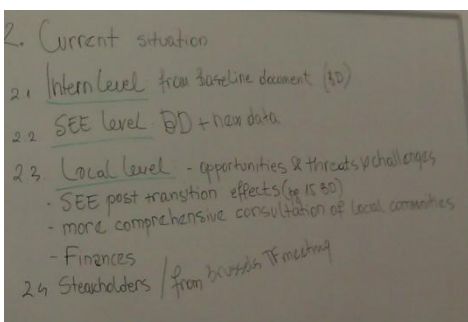 2. Current situation
2.1 Intern Level from baseline document (BD)
2.2 SEE level BD + new data
2.3. Local level - opportunities & threats challenges
· SEE post transition effects (pg 15 BD)
- more comprehensive consultation of local comunities
- Finances
2.4 Steackholders / from Brussels TF meeting